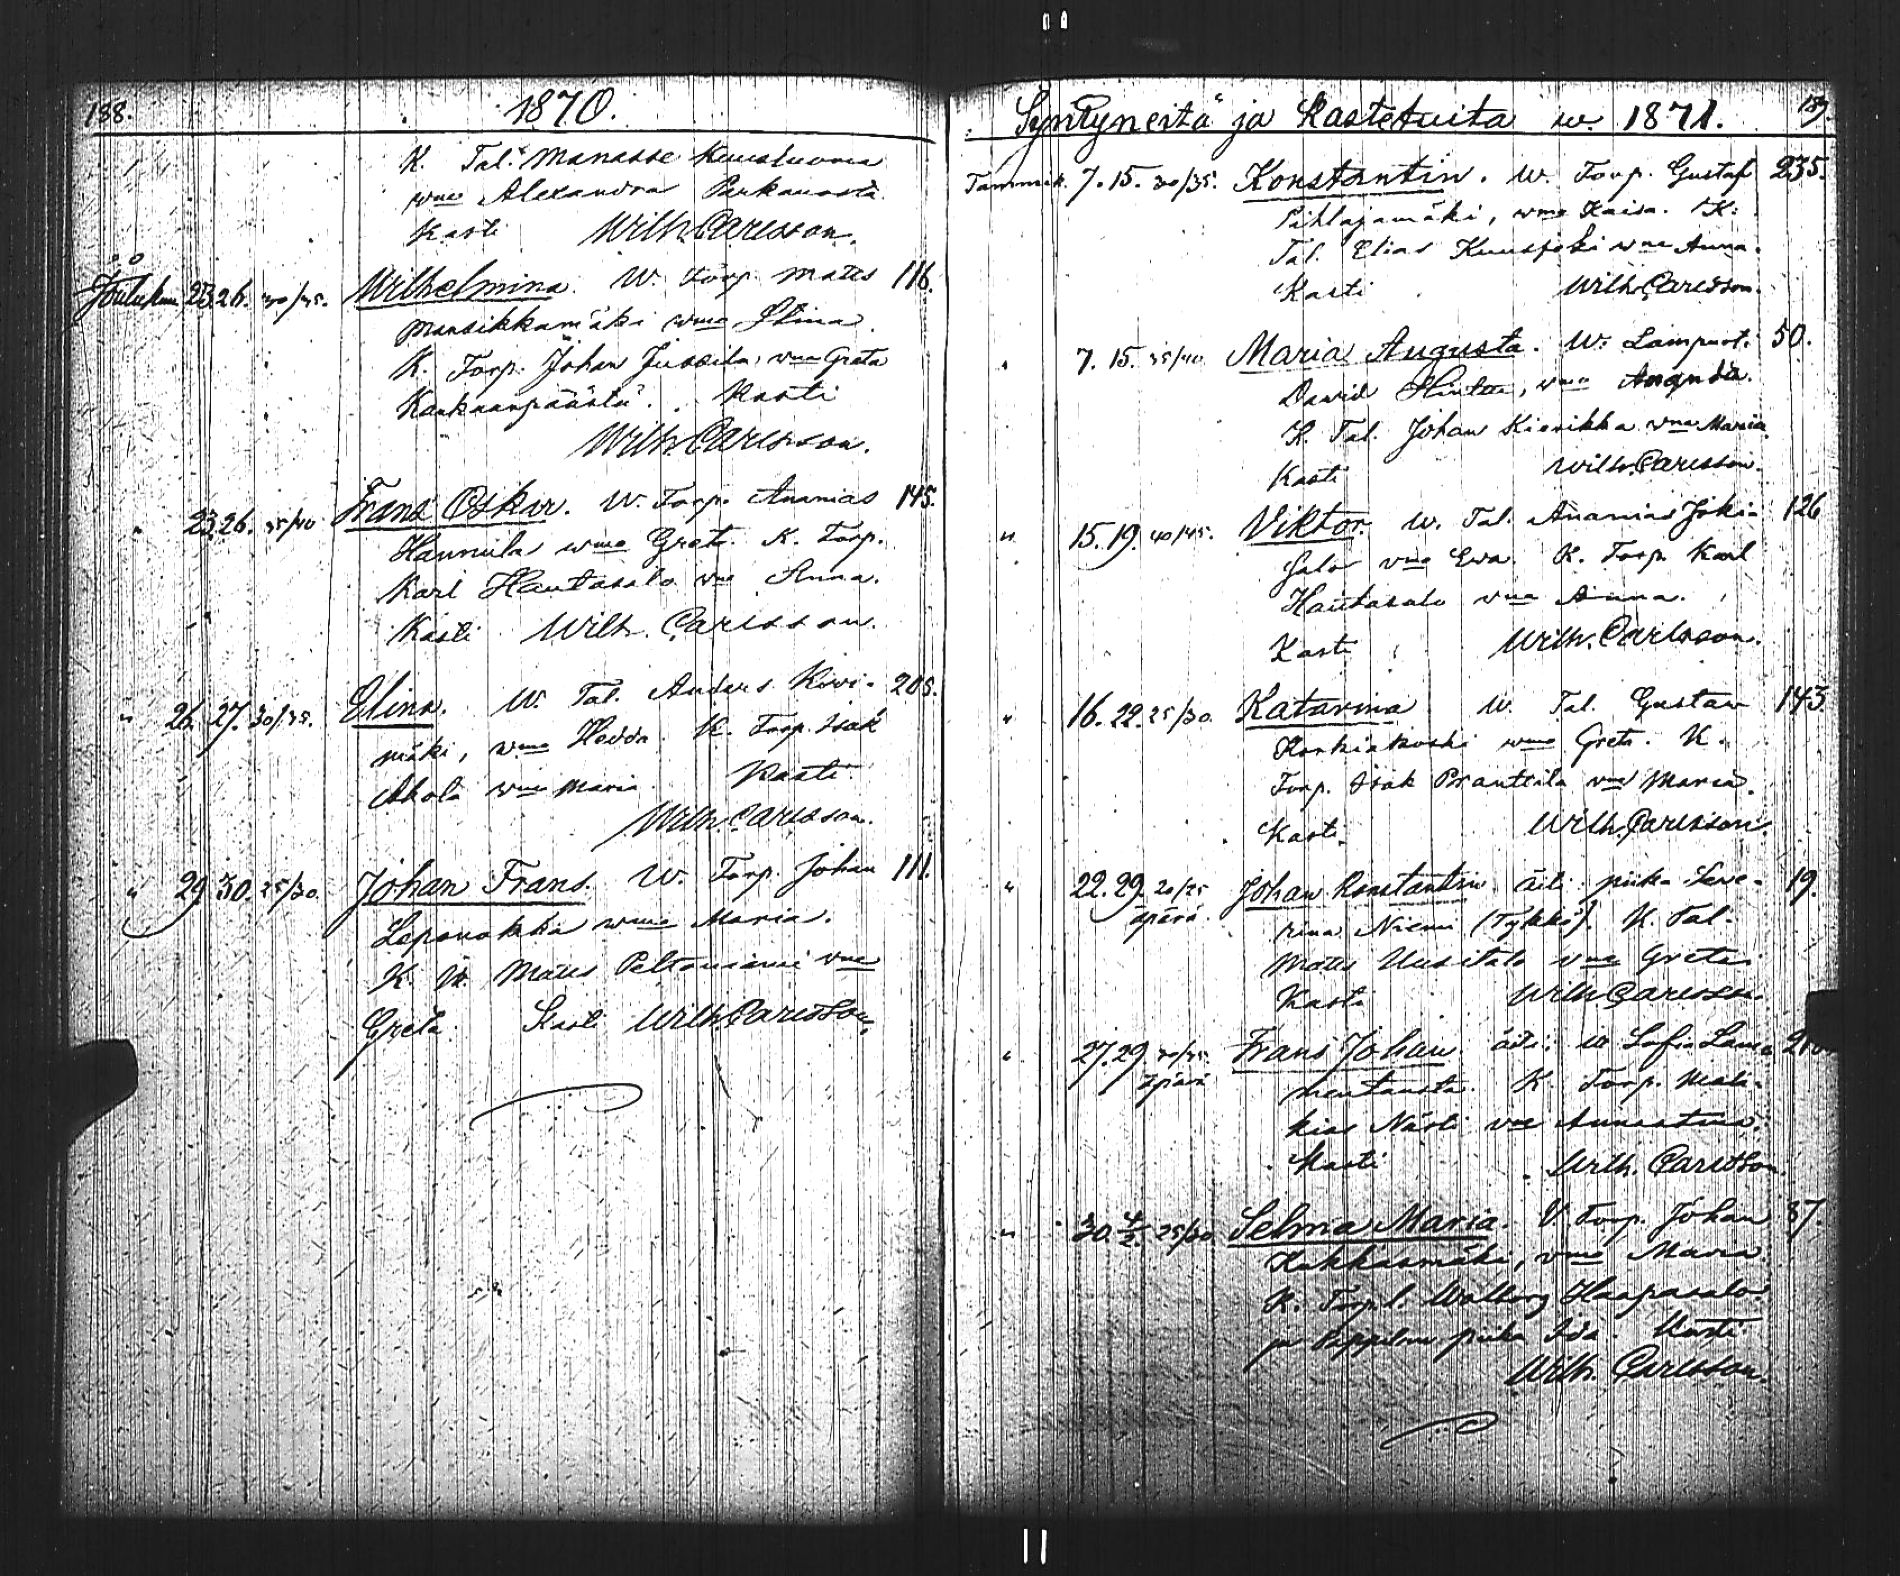 188. 1870.
K. Tal. Manasse Kuusluoma
vmo Alexandra Parkanosta
Kasti Wilh. Carlsson.
Jouluk. 23. 26. 30/35. Wilhelmina. W. Torp. Matts 116.
Mansikkamäki vmo Stina.
K. Torp. Johan Jussila, vmo Greta
Kankaanpäästä. Kasti
Wilh. Carlsson.
" 23. 26. 35/40 Frans Oskar. W. Torp. Ananias 145.
Hannula vmo Greta. K. Torp.
Karl Hautasalo vmo Anna.
Kasti Wilh. Carlsson.
" 26. 27. 30/35. Elina. W. Tal. Anders Kivi- 205.
mäki, vmo Hedda. K. Torp. Isak
Ahola vmo Maria. Kasti
Wilh. Carlsson.
" 29. 30. 25/30. Johan Frans. W. Torp. Johan 111.
Leponokka vmo Maria.
K. Matts Peltoniemi vmo
Greta. Kasti Wilh. Carlsson.
Syntyneitä ja Kastetuita w. 1871. 189.
Tammik. 7. 15. 30/35. Konstantin. W. Torp. Gustaf 235.
Pihlajamäki, vmo Kaisa. K.
Tal. Elias Kuusjoki vmo Anna.
Kasti Wilh. Carlsson.
" 7. 15. 35/40 Maria Augusta. W. Lampuot. 50.
David vmo Amanda.
K. Tal. Johan Kierikka vmo Maria.
Kasti Wilh. Carlsson.
" 15. 19. 40/45. Viktor. W. Tal. Ananias Joki- 126
salo vmo Ewa. K. Torp. Karl
Hautasalo vmo Anna.
Kasti Wilh. Carlsson.
" 16. 22. 25/30. Katarina W. Tal. Gustav 143
Korkiakoski vmo Greta. K.
Torp. Isak Pranttila vmo Maria.
Kasti. Wilh. Carlsson.
" 22. 29. 20/25 Johan Konstantin äiti piika Seve- 19.
äpärä. rina Niemi (Tykkö). K. Tal.
Matts Uusitalo vmo Greta.
Kasti Wilh. Carlsson.
" 27. 29. 30/35. Frans Johan äiti: Sofia Lam-
äpärä mentausta. K. Torp. Mala-
kias Närti vmo Annastina.
Kasti Wilh. Carlsson.
" 30. 4/2. 25/30 Selma Maria. V. Torp. Johan 87.
Kukkasmäki, vmo Maria.
K. Torpl. Walborg Haapasalo
ja Pappilan piika Ida. Kasti
Wilh. Carlsson.